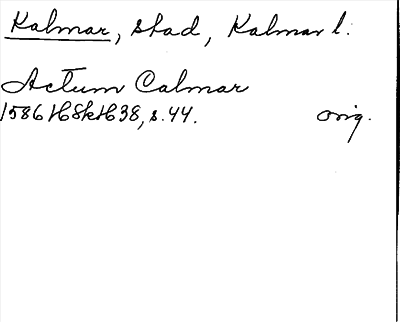 Kalmar, stad, Kalmar l.
Actum Calmar
1586 16/8 KH 38, s. 44. orig.